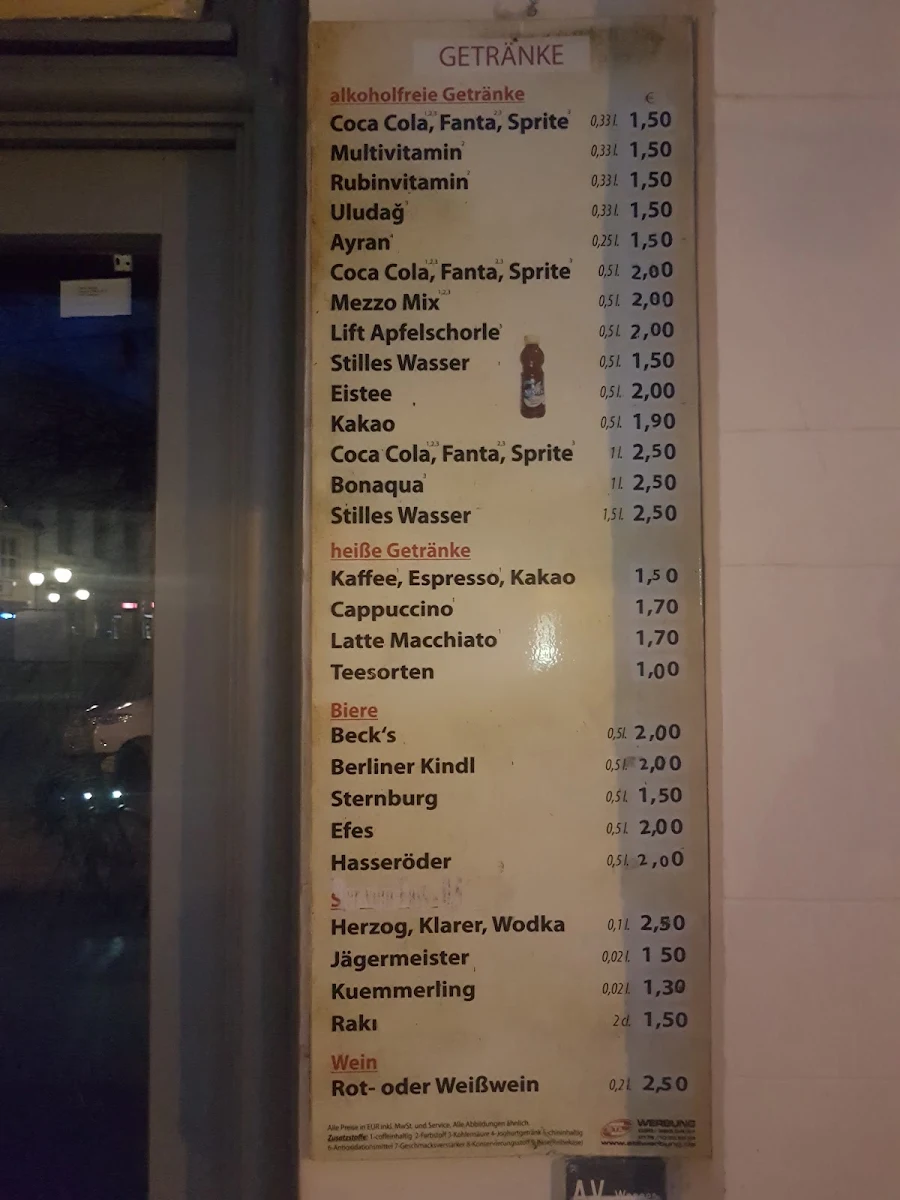 GETRÄNKE
alkoholfreie Getränke €
Coca Cola,1,2,3 Fanta,2,3 Sprite3 0,33 l. 1,50
Multivitamin2 0,33 l. 1,50
Rubinvitamin2 0,33 l. 1,50
Uludağ3 0,33 l. 1,50
Ayran4 0,25 l. 1,50
Coca Cola,1,2,3 Fanta,2,3 Sprite3 0,5 l. 2,00
Mezzo Mix1,2,3 0,5 l. 2,00
Lift Apfelschorle3 0,5 l. 2,00
Stilles Wasser 0,5 l. 1,50
Eistee 0,5 l. 2,00
Kakao 0,5 l. 1,90
Coca Cola,1,2,3 Fanta,2,3 Sprite3 1 l. 2,50
Bonaqua3 1 l. 2,50
Stilles Wasser 1,5 l. 2,50
heiße Getränke
Kaffee1, Espresso1, Kakao 1,50
Cappuccino1 1,70
Latte Macchiato1 1,70
Teesorten 1,00
Biere
Beck‘s 0,5l. 2,00
Berliner Kindl 0,5 l. 2,00
Sternburg 0,5 l. 1,50
Efes 0,5 l. 2,00
Hasseröder 0,5 l. 2,00
Herzog, Klarer, Wodka 0,1 l. 2,50
Jägermeister 0,02 l. 1 50
Kuemmerling 0,02 l. 1,30
Rakı 2 cl. 1,50
Wein
Rot- oder Weißwein 0,2 l. 2,50
Alle Preise in EUR inkl. MwSt. und Service. Alle Abbildungen ähnlich.
Zusatzstoffe: 1-coffeinhaltig 2-Farbstoff 3-Kohlensäure 4-Joghurtgetränk
6-Antioxidationsmittel 7-Geschmacksverstärker 8-Konservierungsstoff
WERBUNG
A.V.